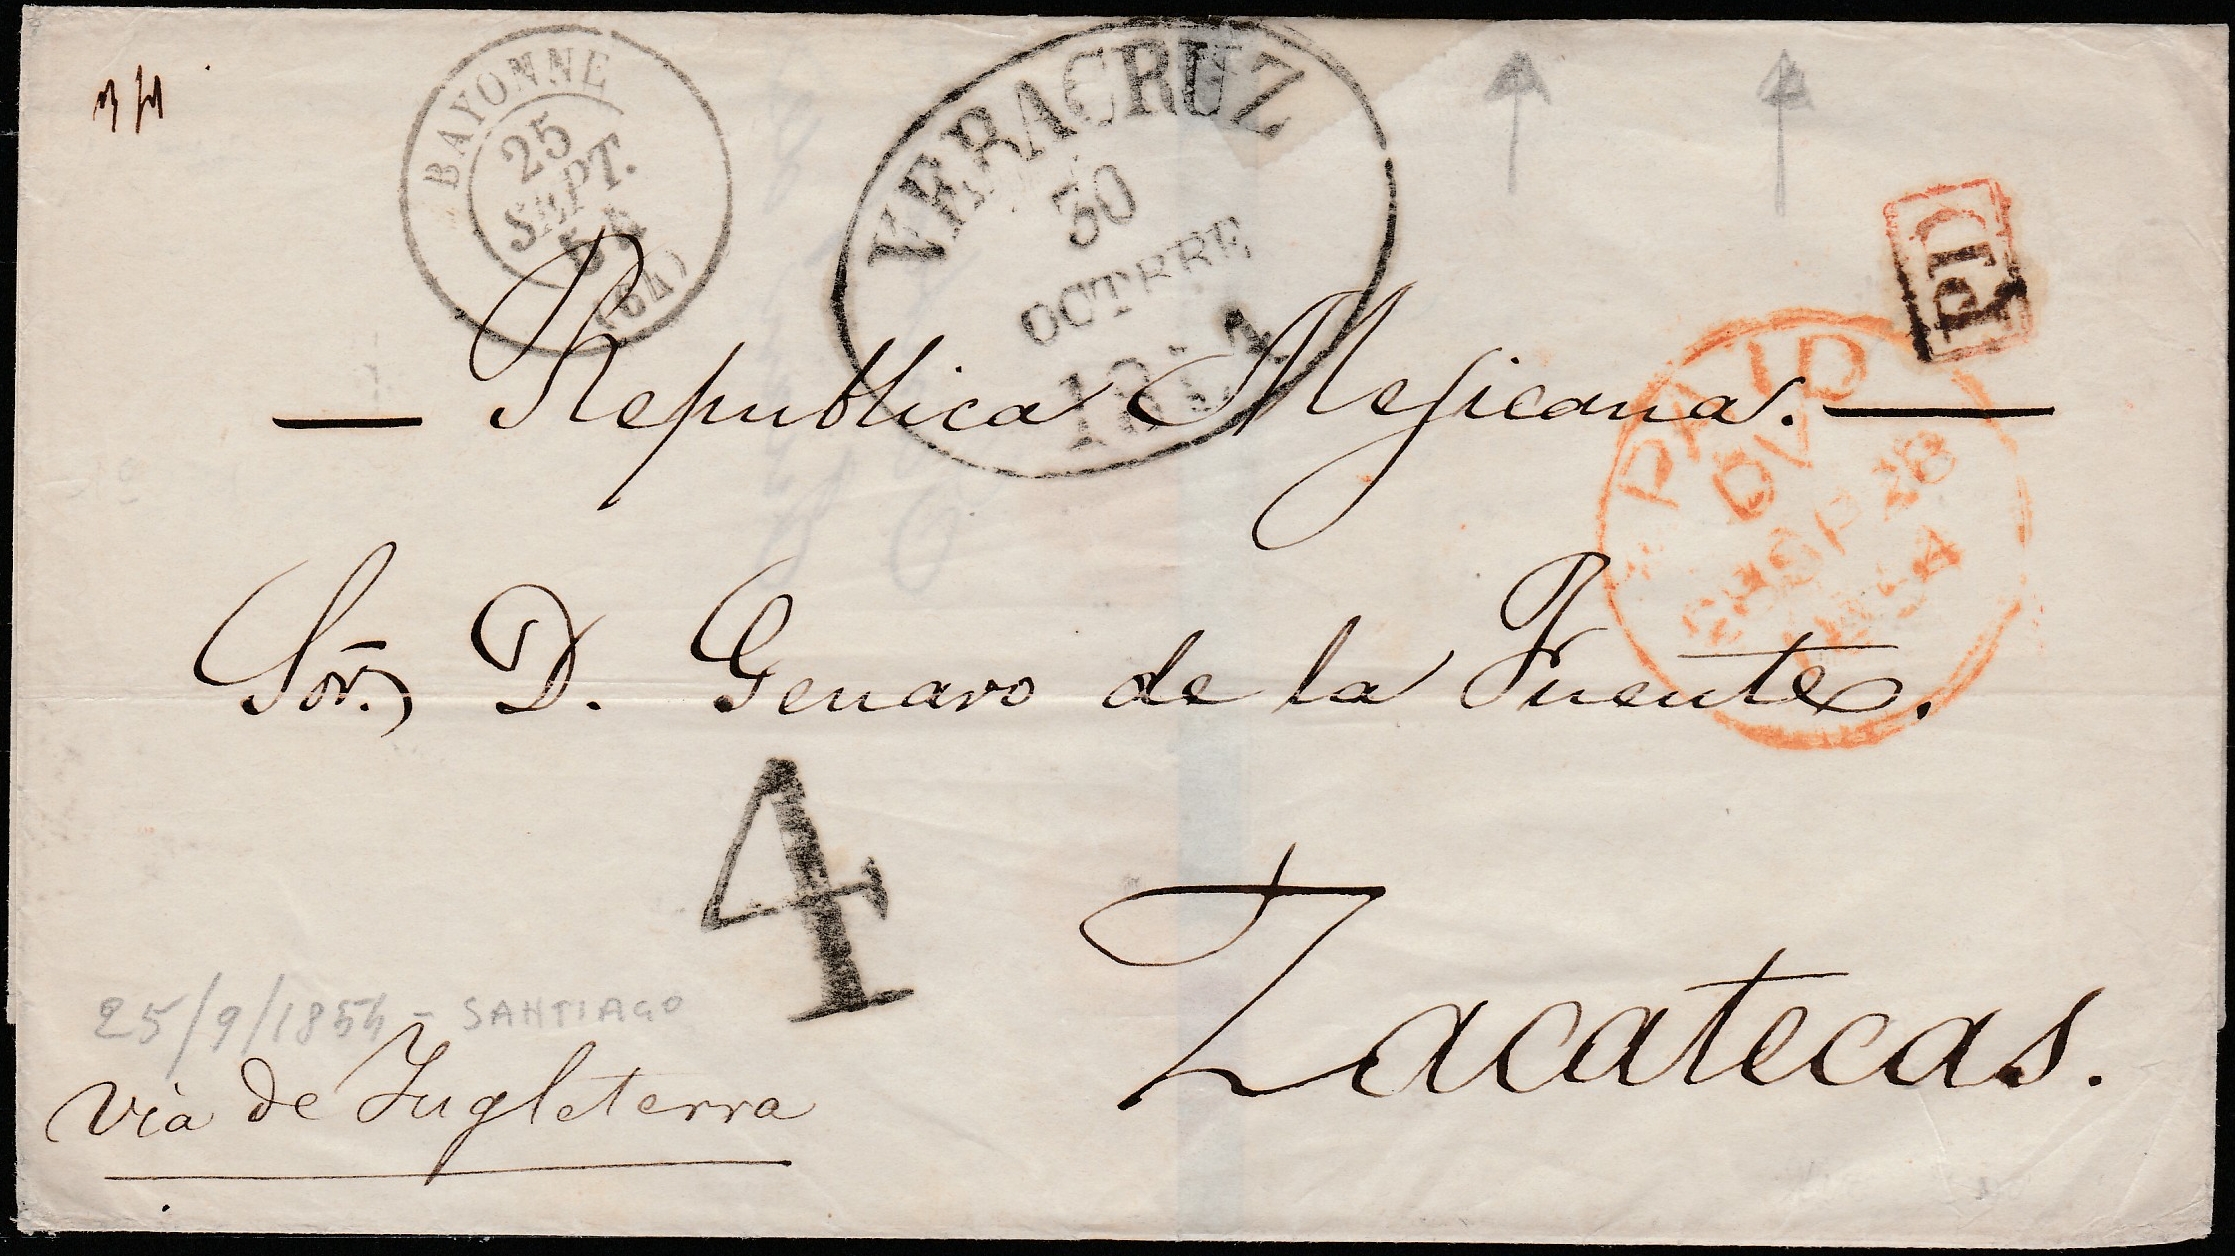 BAYONNE
25
SEPT.
54
(64)
VERACRUZ
30
OCTBRE
1854
PD
PAID
SP 28
1854
— Republica Mejicana. —
Sōr. D. Genaro de la Fuente.
4
Zacatecas.
25/9/1854 - SANTIAGO
via de Inglaterra